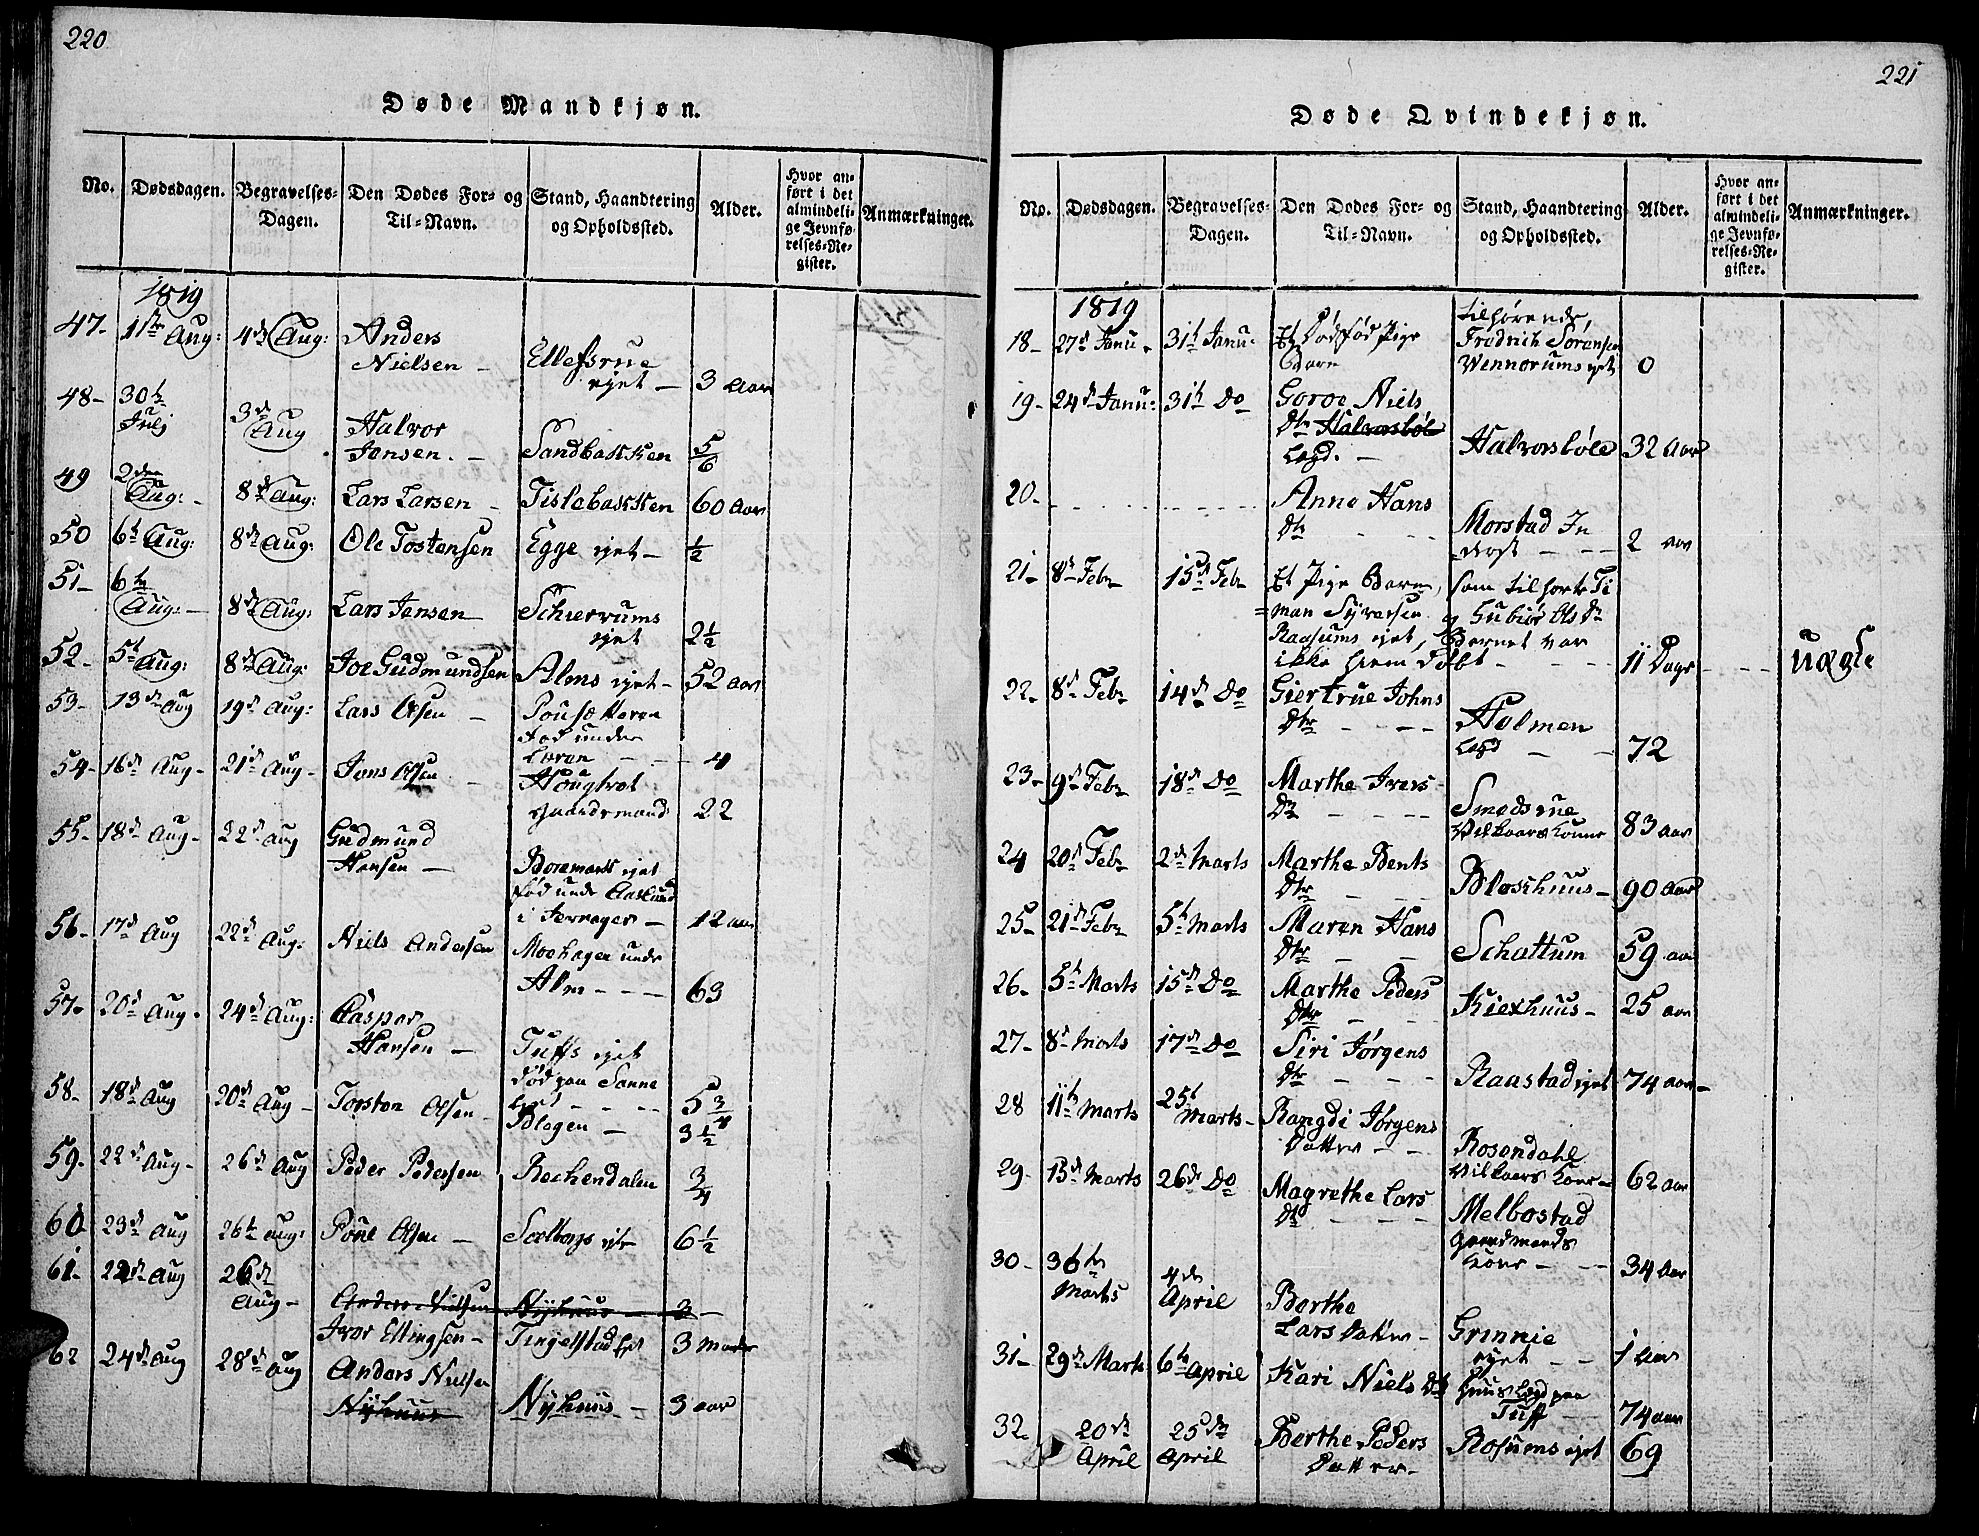 220
Døde Mandkjøn.
No. Dødsdagen. Begravelses-Dagen. Den Dødes For- og Til-Navn. Stand, Haandtering og Opholdssted. Alder. Hvor anført i det almindelige Jevnførelses-Register. Anmærkninger.
1819
47- 1ste Aug: 4de Aug: Anders
Nielsen - Ellefsrue
ejet - 3 Aar
48- 30te
Julj 3de Aug Halvor
Jensen. - Sandbakken 5/6
49 2den
Aug: - 8de Aug: Lars Larsen - Tislebakken 60 Aar
50 6te Aug: 8de Aug: Ole Tostensen Egge ejet - 1/2
51- 6te
Aug: - 8de Aug: Lars Jensen Schierrums
ejet 2 1/2
52- 5te Aug: 8de Aug: Joe Gudmundsen Alms ejet - 52 aar
53- 13de Aug 19de Aug: Lars Olsen -
død under
Loran - - - 4
54- 16de Aug- 21de Aug- Jons Olsen -
gaardemand 22
55- 18de Aug- 22de aug Gudmund
Hansen - Boremark ejet
fød unde Aaslund
i Jevnager - 12 aar
56- 17de Aug 22de Aug: Niels Andersen Moehagen unde
Alm - - - 63
57- 20de Aug- 24de Aug: Caspar
Hansen - Tuffs ejet
død paa Sanne
- - - 5 3/4
58- 18de Aug 20de Aug - Torsten Olsen - Blegen - 3 1/2
59- 22de Aug- 26de Aug Peder Pedersen Rechendalen 3/4
60 23de Aug 26te aug: Poul Olsen - Soelbergs ejt 6 1/2
61- 22de Aug 26de
Aug - Anders Nielsen Nyhuus - 3 -
Iver Ellingsen - Tingelstad ejet 3 Maaneder
62 24de aug 28de aug Anders Nielsen
Nyhuus Nyhuus - 3 aar
221
Døde Qvindekjøn.
No. Dødsdagen. Begravelses-Dagen. Den Dødes For- og Til-Navn. Stand, Haandtering og Opholdssted. Alder. Hvor anført i det almindelige Jevnførelses-Register. Anmærkninger.
1819
18- 27de Janu- 31te Janu- Et Dødfød Pige
Barn tilhørende,
Fredrich Sørensen
Wennerums ejet 0
19- 24de Janu: 31te Do Goroe Niels
Dtr Halvorsböle
Legd. - Halvorsböle 32 Aar
20- Anne Hans
Dtr - - - Morstad In
derst - - - 2 aar
21- 8de Feb 15de Feb Et Pige Barn, som tilhørte Ti
=man Syversen og Gubiør Ols Dtr
Raasums ejet, Barnet var
ikke hiem døbt - - - 11 Dage - - - uægte
22- 8de Feb 14de Do Giertrue Johns
Dtr - - - Holmen
Legd - - 72
23- 9de Feb 18de Do Marthe Ivers
Dtr - - - Smedsrue
Vilkaars Kone 83 aar
24 20de Feb 2de Marts Marthe Bents
Dtr - - - Bleskhuus - 90 Aar
25- 21de Feb 5te Marts Maren Hans
Dtr - - Schattum 59 aar
26- 5te Marts 15de Do Marthe Peders
Dtr - - Kiexhuus - 25 aar
27- 8de Marts 17de Do Siri Jørgens
Dtr - - - Raastad ejet 74 aar -
28 11te Marts 25te
Marts - Rangdi Jørgens
Datter - - Rosendahl
Vilkaars Kone - 62 aar
29- 13de Marts 26de Do Magrethe Lars
Dtr - - - Melbostad
Gaardmands
Kone - - 34 Aar
30- 30te
Marts 4de
April Berthe
Lars Datter - Grinnie
ejet - - 1 Aar
31- 29de Marts 6te April Kari Niels Dtr Huuslegd paa
Tuff - - 74 aar
32- 20de
April 25de
April Berthe Peders
Datter - Rosums ejet 69